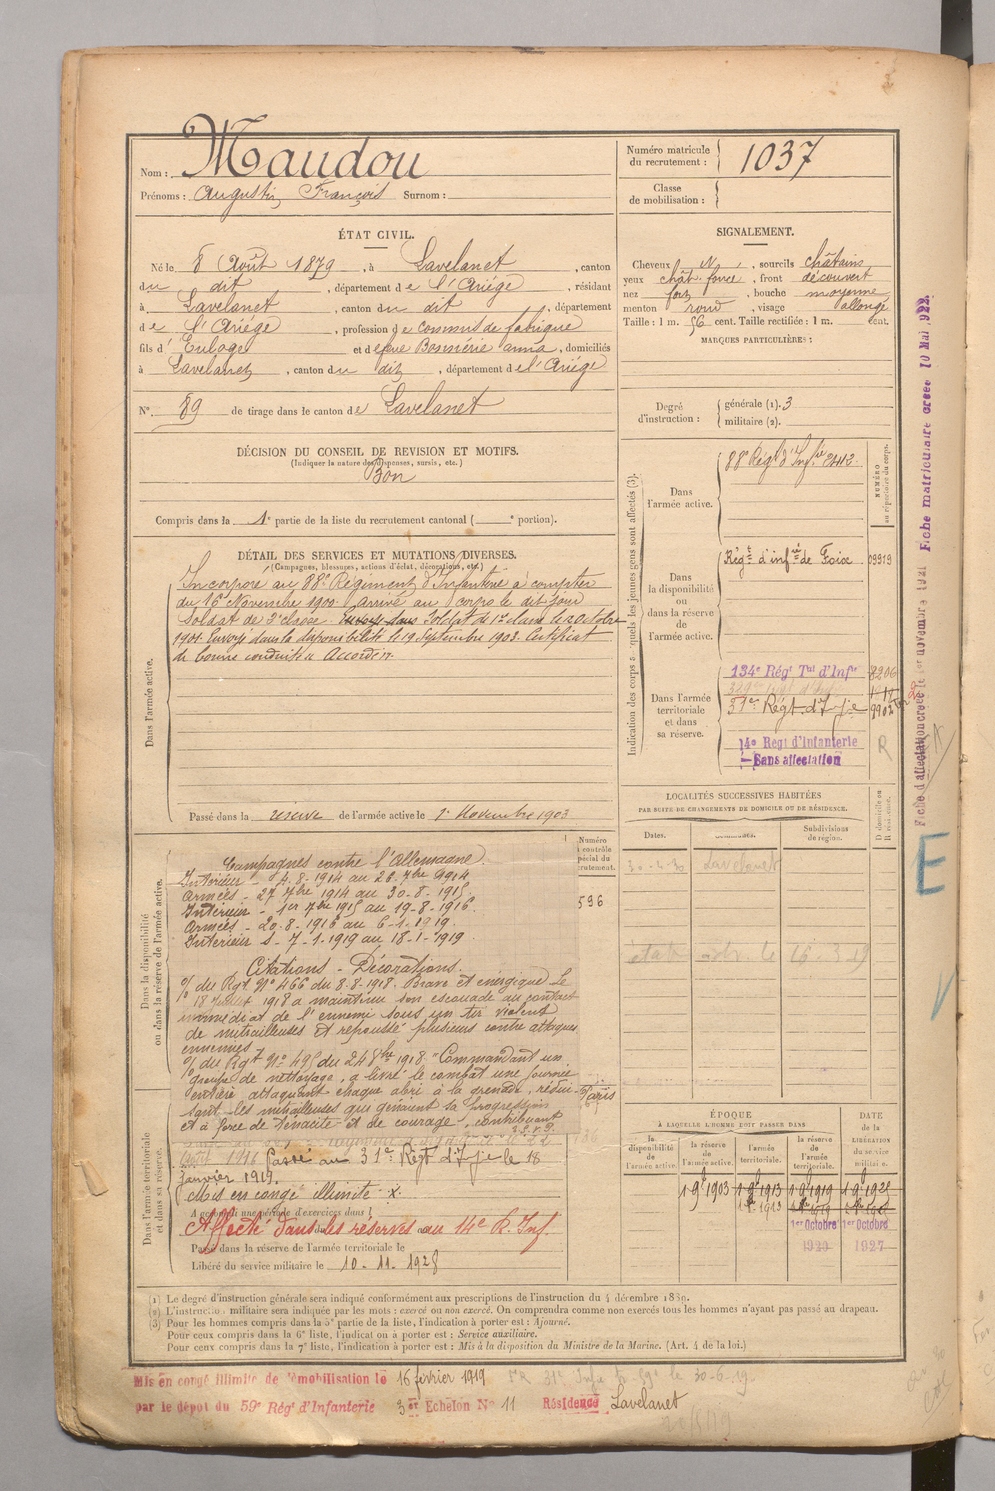 Nom : Maudou
Prénoms : Augustin François Surnom :
Numéro matricule du recrutement : 1037
Classe de mobilisation :
ÉTAT CIVIL.
Né le 8 Août 1879, à Lavelanet, canton
du dit, département de l'Ariège, résidant
à Lavelanet, canton du dit, département
de l'Ariège, profession de commis de fabrique
fils d'Eulage et de feue Bosmérie anna, domiciliés
à Lavelanet, canton du dit, département de l'Ariège
N° 89 de tirage dans le canton de Lavelanet
SIGNALEMENT.
Cheveux N, sourcils châtains
yeux chât. foncé, front découvert
nez fort, bouche moyenne
menton rond, visage allongé
Taille : 1 m. 56 cent. Taille rectifiée : 1 m. cent.
MARQUES PARTICULIÈRES :
Degré d'instruction : générale (1). 3
militaire (2).
DÉCISION DU CONSEIL DE REVISION ET MOTIFS.
(Indiquer la nature des dispenses, sursis, etc.)
Bon
Compris dans la 1e partie de la liste du recrutement cantonal ( e portion).
DÉTAIL DES SERVICES ET MUTATIONS DIVERSES.
(Campagnes, blessures, actions d'éclat, décorations, etc.)
Dans l'armée active.
Incorporé au 88e Régiment d'Infanterie à compter
du 16 Novembre 1900. Arrivé au corps le dit jour
Soldat de 2e classe. Envoyé dans Soldat de 1e classe le 2 octobre
1901. Envoyé dans la disponibilité le 19 Septembre 1903. Certificat
de bonne conduite Accordé.
Passé dans la réserve de l'armée active le 1er Novembre 1903
Indication des corps auxquels les jeunes gens sont affectés (3).
NUMÉRO au répertoire du corps.
Dans l'armée active.
88e Régt d'Inf.ie 2412.
Dans la disponibilité ou dans la réserve de l'armée active.
Régt d'infie de Foix 09919
Dans l'armée territoriale et dans sa réserve.
134e Régt Tal d'Infie 8206
31e Régt d'Infie
14e Regt d'Infanterie R
Sans affectation
Fiche d'affectation créée le 1er novembre 1921 Fiche matriculaire créée 10 Mai 1922.
LOCALITÉS SUCCESSIVES HABITÉES
PAR SUITE DE CHANGEMENTS DE DOMICILE OU DE RÉSIDENCE.
Dates. Communes. Subdivisions de région. D domicile ou R résidence.
Lavelanet
E
V
Dans la disponibilité ou dans la réserve de l'armée active.
Numéro au contrôle spécial du recrutement.
596
Campagnes contre l'Allemagne
Intérieur - 4.8.1914 au 26.7bre 1914
Armées - 27 7bre 1914 au 30-8-1915
Intérieur - 1er 7bre 1915 au 19-8-1916.
Armées - 20-8-1916 au 6-1-1919.
Intérieur S - 7-1-1919 au 18-1-1919
Citations - Décorations.
% du Rgt N° 466 du 8-8-1918. Brave et énergique Le
18 Juillet 1918 a maintenu son escouade au contact
immédiat de l'ennemi sous un tir violent
de mitrailleuses et repoussé plusieurs contre attaques
ennemies
% du Rgt N° 495 du 24 8bre 1918. "Commandant un
groupe de nettoyage, a livré le combat une journée
entière attaquant chaque abri à la grenade, réduisant les mitrailleuses qui gênaient sa progression
et à force de ténacité et de courage, contribuant
Paris
Dans l'armée territoriale et dans sa réserve.
Août 1916 Passé au 31e Régt d'Infie le 18
Janvier 1919.
Mis en congé illimité x.
A accompli une période d'exercices dans l
Affecté dans les réserves au 14e R. Inf.
Passé dans la réserve de l'armée territoriale le
Libéré du service militaire le 10-11-1928
ÉPOQUE
À LAQUELLE L'HOMME DOIT PASSER DANS
la disponibilité de l'armée active.
la réserve de l'armée active.
l'armée territoriale.
la réserve de l'armée territoriale.
DATE de la LIBÉRATION du service militaire.
1-9bre 1903 1-9bre 1913 1-9bre 1919 1-9bre 1925
1er Octobre 1er Octobre
1920 1927
(1) Le degré d'instruction générale sera indiqué conformément aux prescriptions de l'instruction du 4 décembre 1889.
(2) L'instruction militaire sera indiquée par les mots : exercé ou non exercé. On comprendra comme non exercés tous les hommes n'ayant pas passé au drapeau.
(3) Pour les hommes compris dans la 5e partie de la liste, l'indication à porter est : Ajourné.
Pour ceux compris dans la 6e liste, l'indication à porter est : Service auxiliaire.
Pour ceux compris dans la 7e liste, l'indication à porter est : Mis à la disposition du Ministre de la Marine. (Art. 4 de la loi.)
Mis en congé illimité de démobilisation le 16 février 1919
par le dépôt du 59e Régt d'Infanterie 3er Echelon N° 11 Résidence Lavelanet